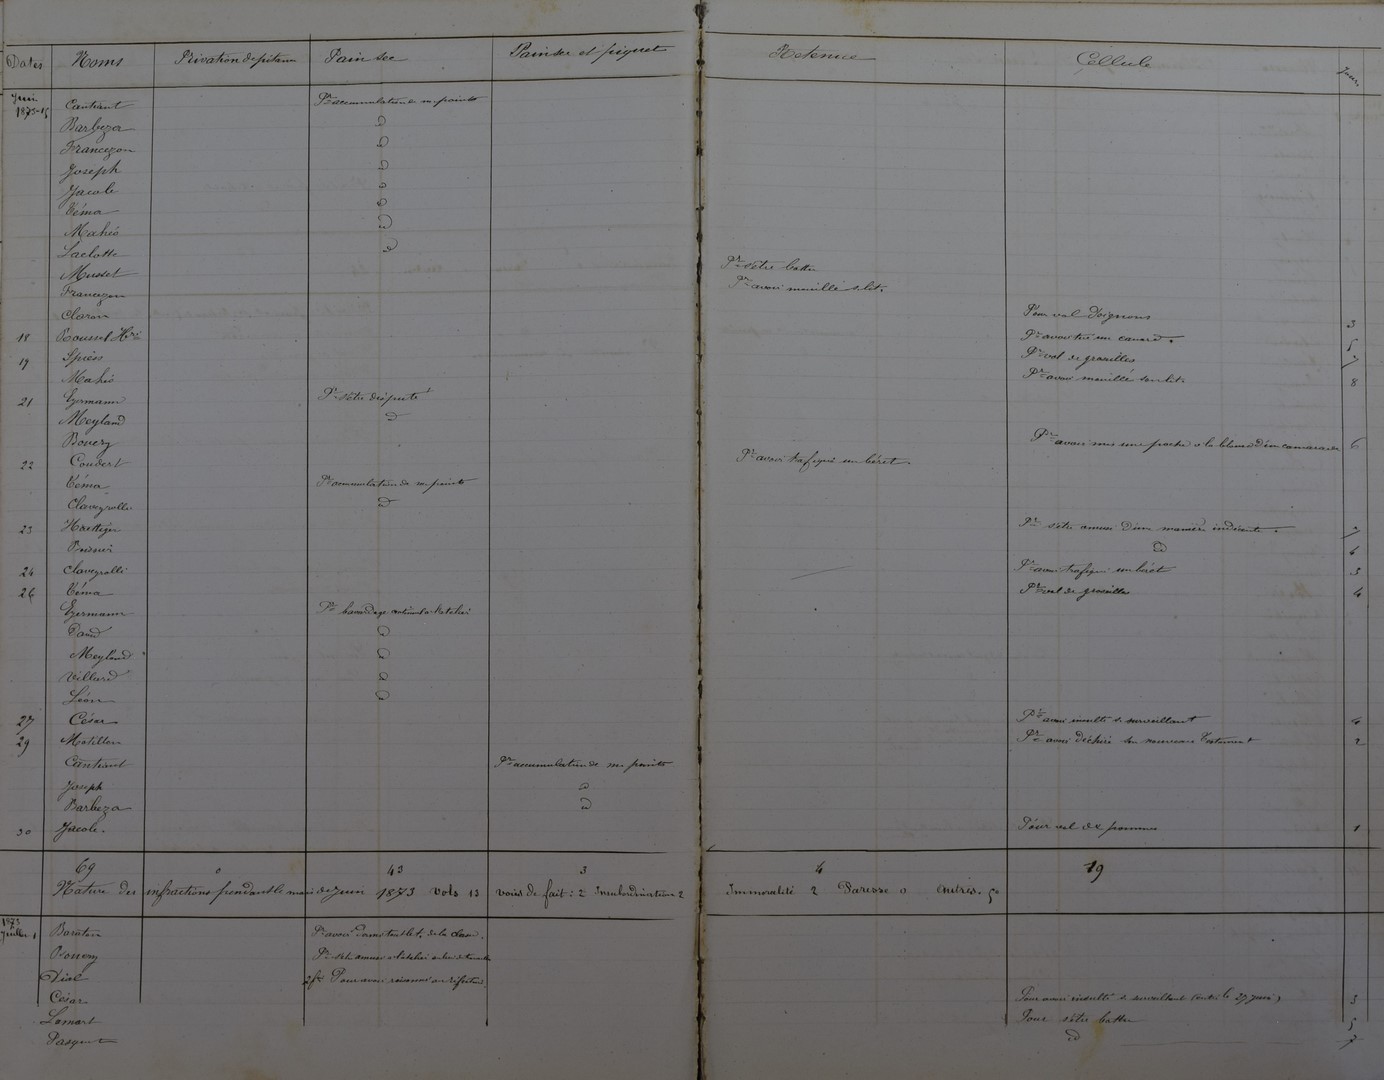 Dates Noms Privation de pitance Pain sec Pain sec et piquet Retenue Cellule Jours
Juin 1873-15 Cantrant Pr accumulation de m. points
Barbeza d
Francezon d
Joseph d
Jacob d
Téma d
Mahéo d
Laclotte d
Musset Pr s'être battu
Francezon Pr avoir mouillé s. lit.
Claron Pour vol d'oignons 3
18 Roussel Hri Pr avoir tué un canard. 5
19 Spiess Pr vol de groseilles 7
Mahéo Pr avoir mouillé son lit. 8
21 Egermann Pr s'être disputé
Meyland d
Bovery Pr avoir mis une poche à la blouse d'un camarade 6
22 Coudert Pr avoir trafiqué un béret.
Téma Pr accumulation de m. points
Claveyrolle d
23 Pr s'être amusé d'une manière indécente. 7
d 6
24 Claveyrolle Pr avoir trafiqué un béret 3
26 Téma Pr vol de groseilles 4
Egermann Pr bavardage à l'atelier
David d
Meyland d
Villard d
Léon d
27 César Pr avoir insulté le surveillant 4
29 Motillon Pr avoir déchiré son nouveau Testament 2
Cantrant Pr accumulation de m. points
Joseph d
Barbeza d
30 Jacob. Pour vol de pommes 1
69 0 43 3 4 19
Nature des infractions pendant le mois de Juin 1873 Vols 13 voies de fait : 2 Insubordination 2 Immoralité 2 Paresse 0 Autres. 50
1873 Juillet 1 Baraton Pr avoir
Bovery Pr s'être amusé à l'atelier
Dial Pour avoir au réfectoire
César Pour avoir insulté le surveillant (entré le 27 juin) 3
Lamart Pour s'être battu 5
Pasquet d 7